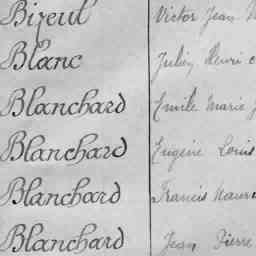 Bizeul Victor Jean
Blanc Julien Henri
Blanchard Emile Marie J
Blanchard Eugène Louis
Blanchard Francis
Blanchard Jean Pierre